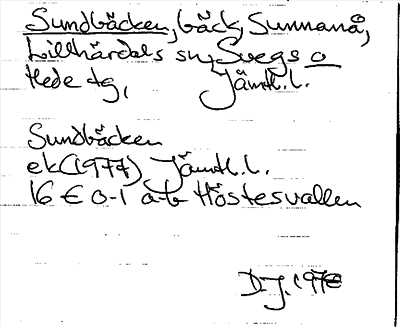 Sundbäcken, bäck, Sunnanå,
Lillhärdals sn, Svegs o
Hede tg, Jämtl.l.
Sundbäcken
ek (1977) Jämtl.l.
16 E 0-1 a-b Höstesvallen
D-J. 1978